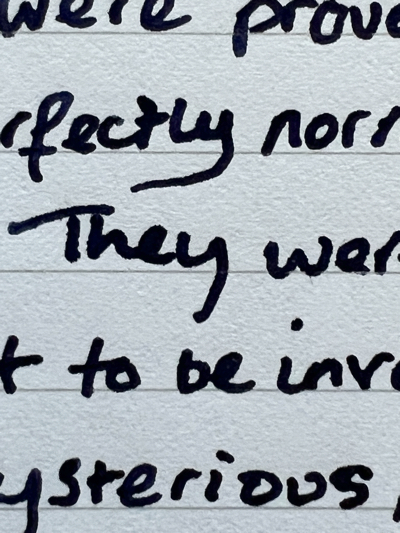 were prou
rfectly nor
They wer
t to be inv
ysterious